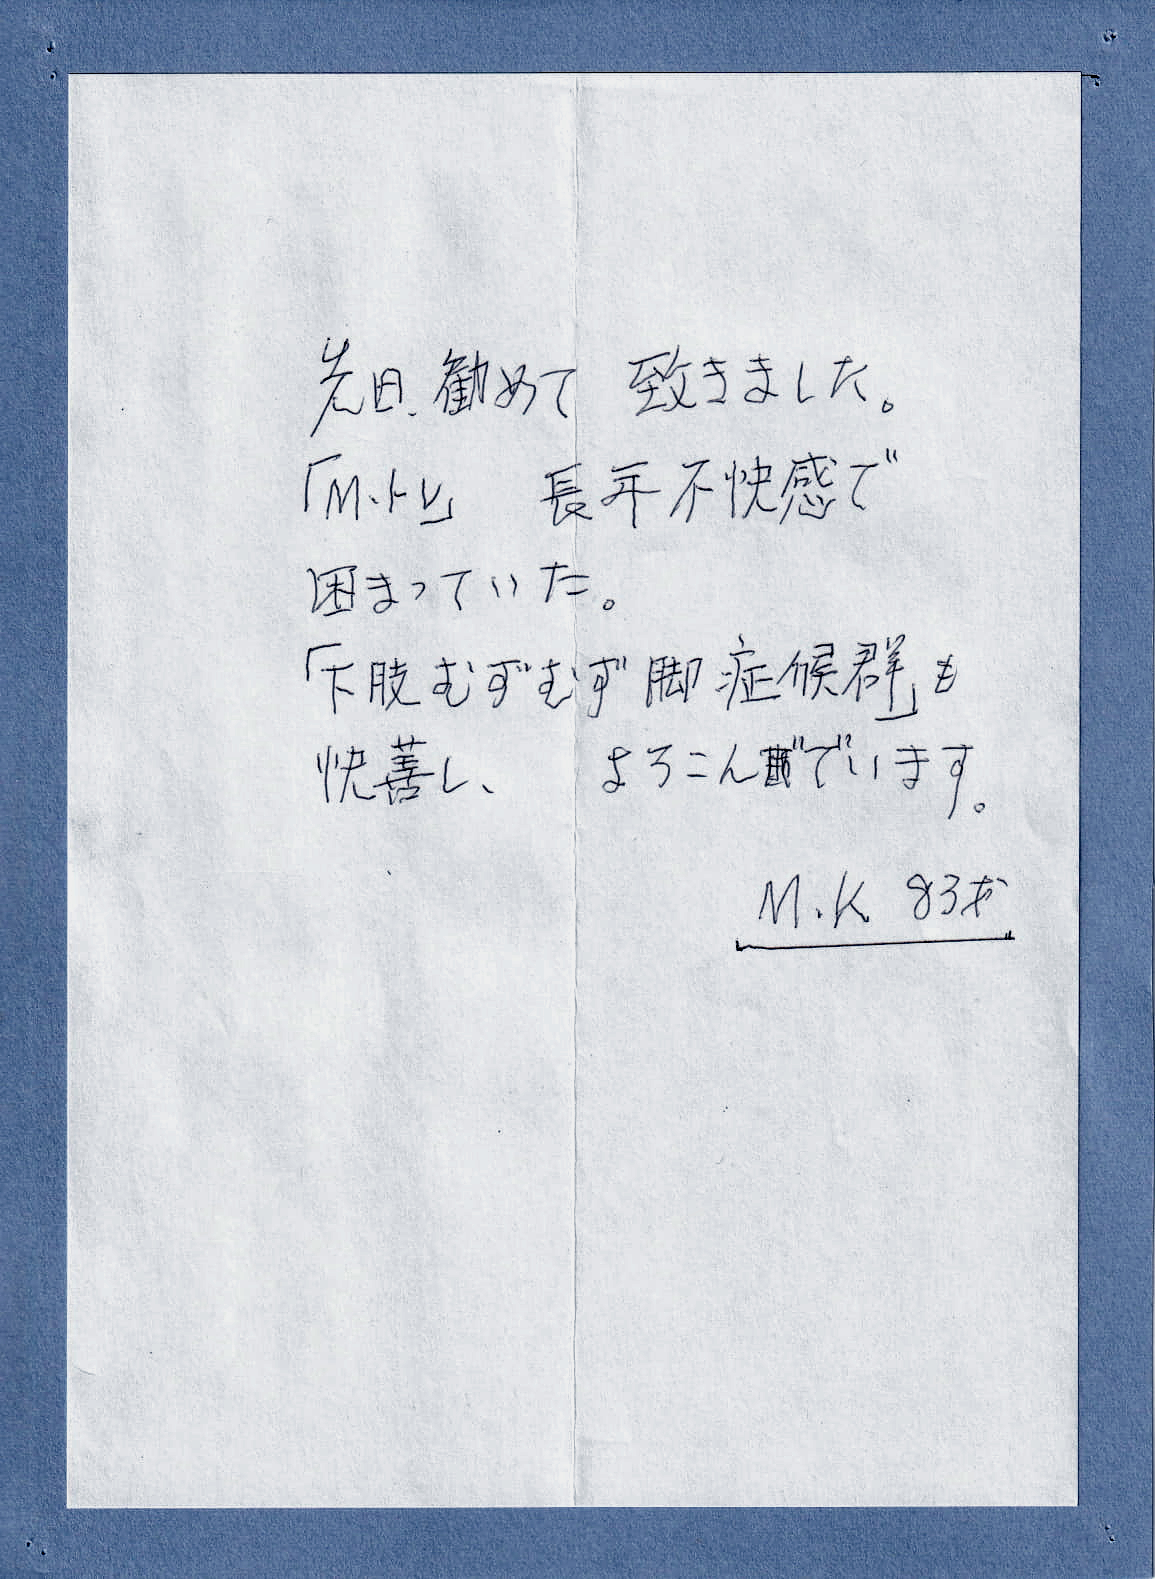 先日、勧めて 致きました。
「M.トレ」 長年不快感で
困まっていた。
「下肢むずむず脚症候群」も
快善し、 よろこんでいます。
M.K 83才